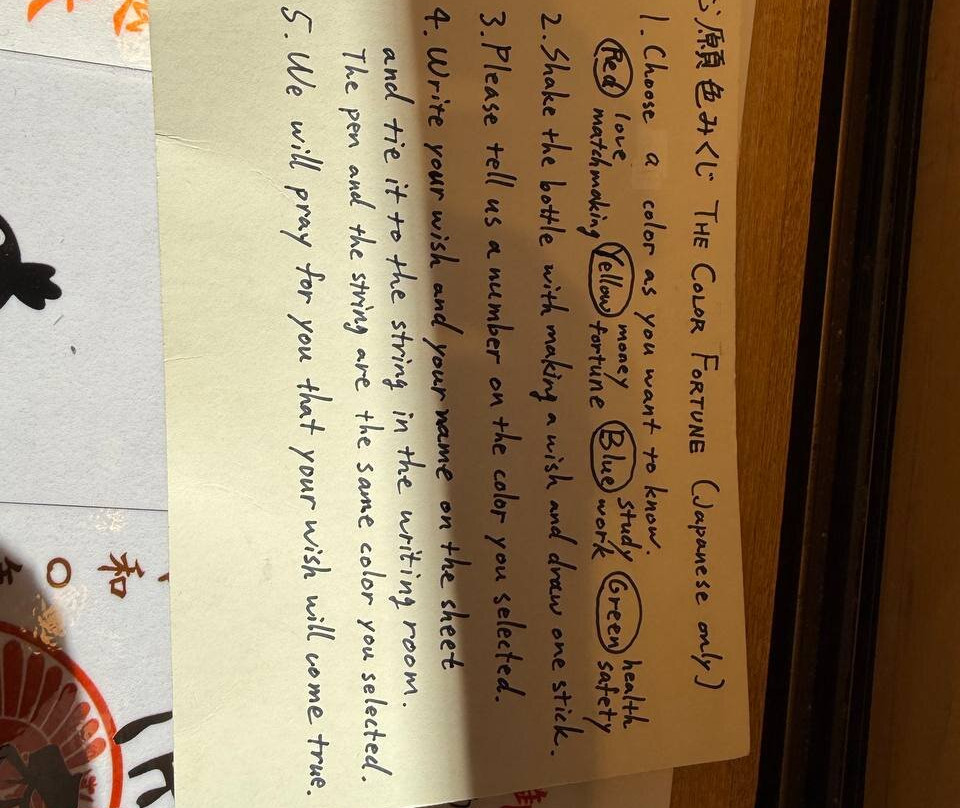 願色みくじ THE COLOR FORTUNE (Japanese only)
1. Choose a color as you want to know.
Red love matchmaking Yellow money fortune Blue study work Green health safety
2. Shake the bottle with making a wish and draw one stick.
3. Please tell us a number on the color you selected.
4. Write your wish and your name on the sheet
and tie it to the string in the writing room.
The pen and the string are the same color you selected.
5. We will pray for you that your wish will come true.
和